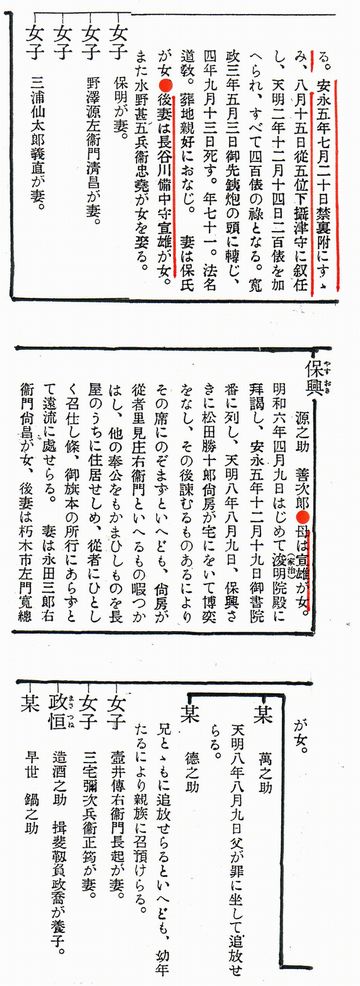 る。安永五年七月二十日禁裏附にすゝ
み、八月十五日從五位下攝津守に叙任
し、天明二年十二月十四日二百俵を加
へられ、すべて四百俵の祿となる。寛
政三年五月三日御先鉄炮の頭に轉じ、
四年九月十三日死す。年七十一。法名
道敎。葬地親好におなじ。 妻は保氏
が女●後妻は長谷川備中守宣雄が女。
また水野甚五兵衛忠堯が女を娶る。
女子 保明が妻。
女子 野澤源左衛門清昌が妻。
女子
女子 三浦仙太郎義直が妻。
保興 やすおき
源之助 善次郎●母は宣雄が女。
明和六年四月九日はじめて浚明院殿に(家治)
拜謁し、安永五年十二月十九日御書院
番に列し、天明八年八月九日、保興さ
きに松田勝十郎尙房が宅にをいて博奕
をなし、その後諫むるものあるにより
その席にのぞまずといへども、尙房が
從者里見庄右衛門といへるもの暇つか
はし、他の奉公をもかまひしものを長
屋のうちに住居せしめ、從者にひとし
く召仕し條、御旗本の所行にあらずと
て遠流に處せらる。 妻は永田三郎右
衛門尙昌が女、後妻は朽木市左門寬總
が女。
某 萬之助
天明八年八月九日父が罪に坐して追放せ
らる。
某 德之助
兄とゝもに追放せらるといへども、幼年
たるにより親族に召預けらる。
女子 壺井傳右衛門長起が妻。
女子 三宅彌次兵衛正筠が妻。
政恒 まさつね 造酒之助 揖斐靱負政喬が養子。
某 早世 鍋之助